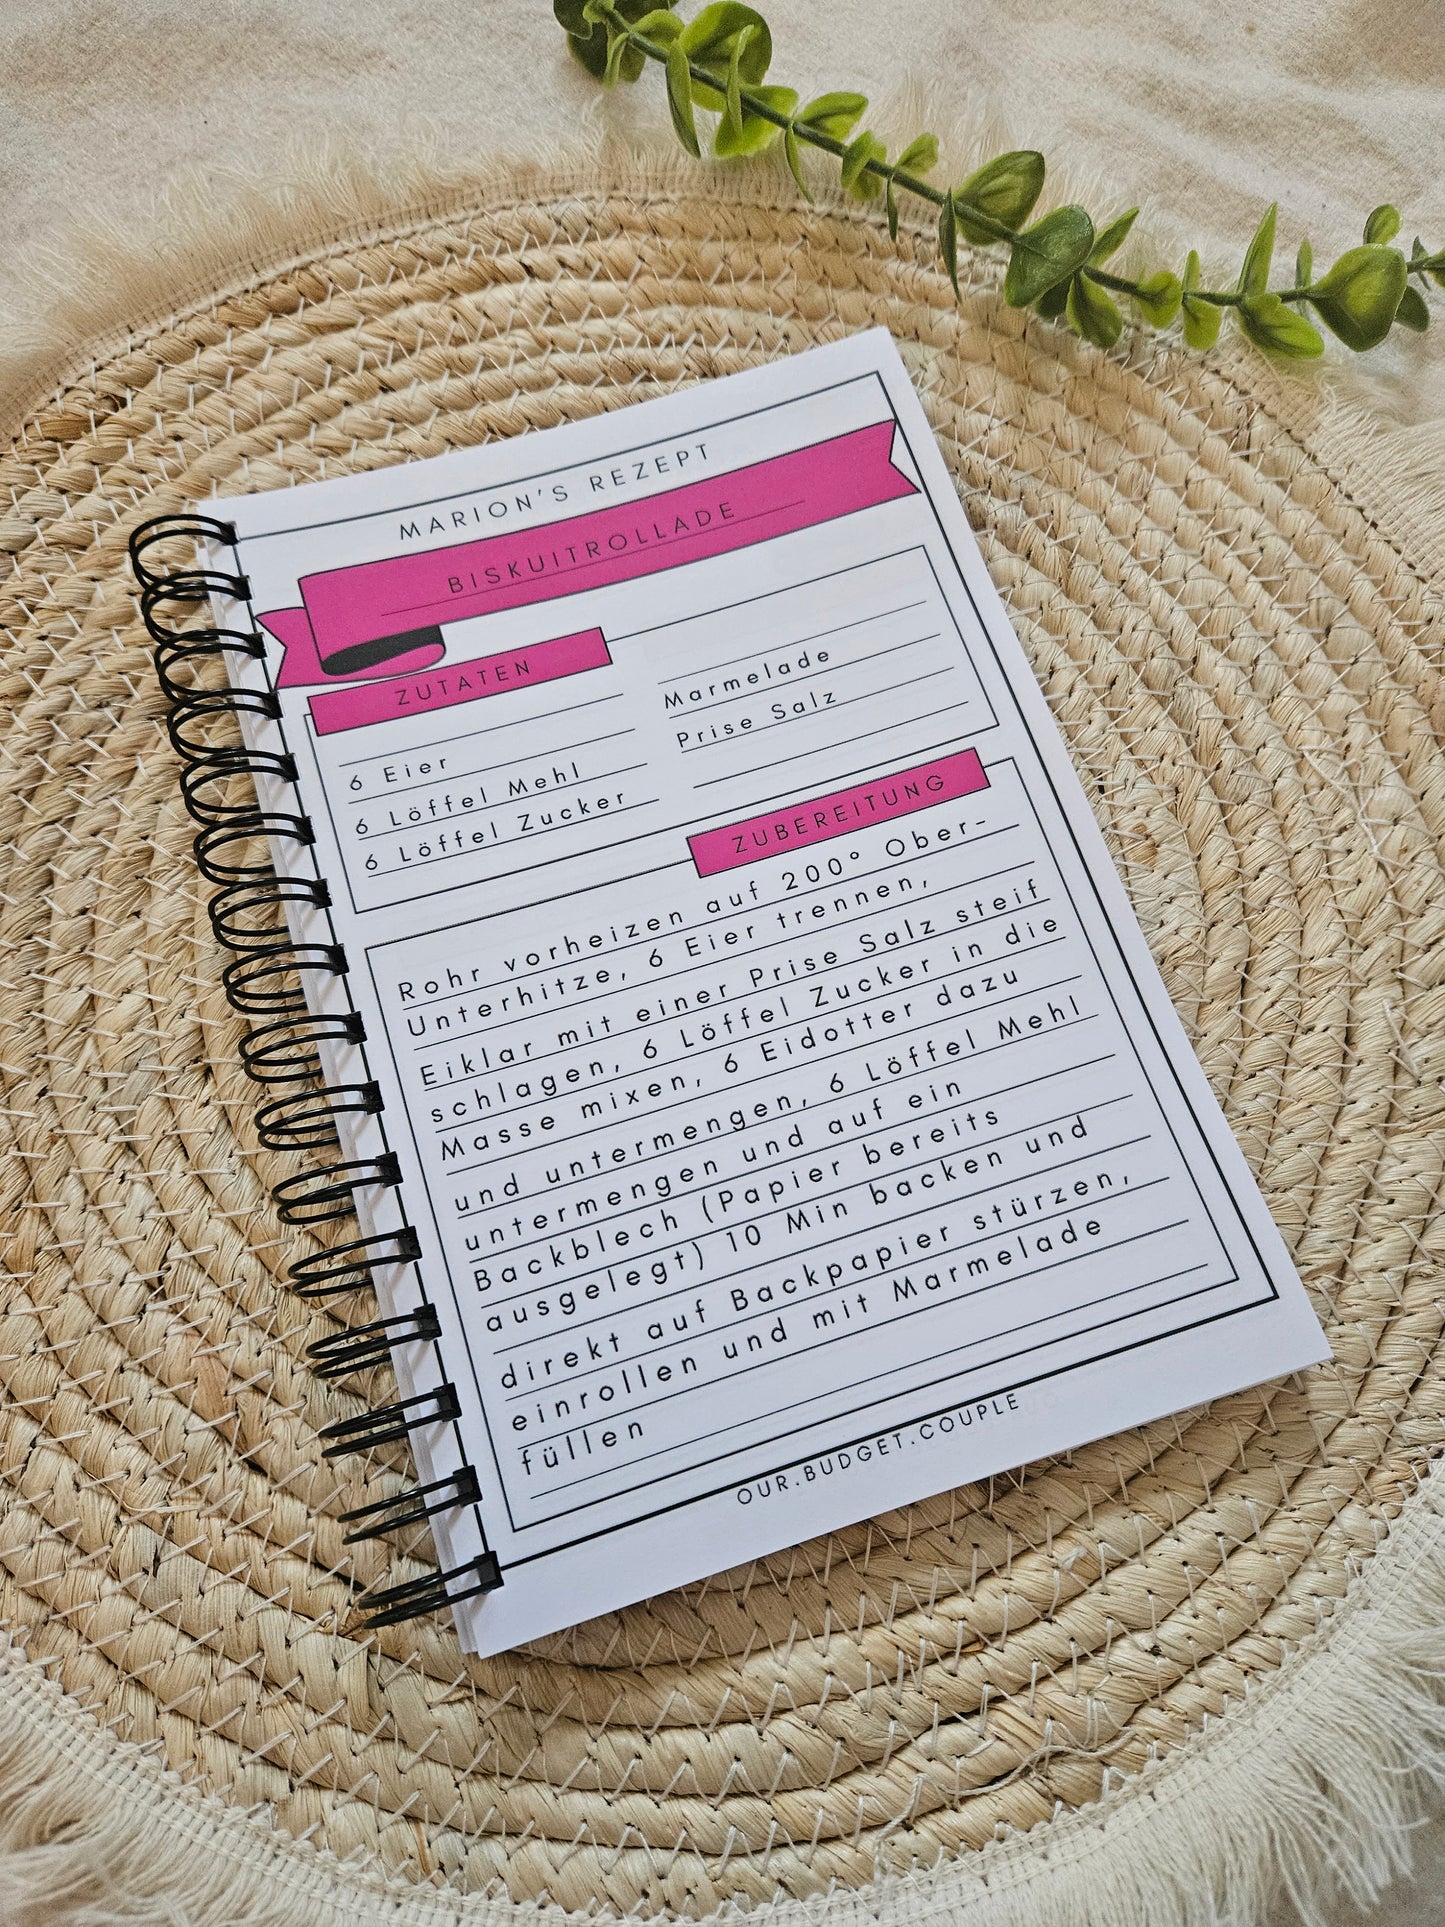 MARION'S REZEPT
BISKUITROLLADE
ZUTATEN
6 Eier
6 Löffel Mehl
6 Löffel Zucker
Marmelade
Prise Salz
ZUBEREITUNG
Rohr vorheizen auf 200° Ober-
Unterhitze, 6 Eier trennen,
Eiklar mit einer Prise Salz steif
schlagen, 6 Löffel Zucker in die
Masse mixen, 6 Eidotter dazu
und untermengen, 6 Löffel Mehl
untermengen und auf ein
Backblech (Papier bereits
ausgelegt) 10 Min backen und
direkt auf Backpapier stürzen,
einrollen und mit Marmelade
füllen
OUR.BUDGET.COUPLE